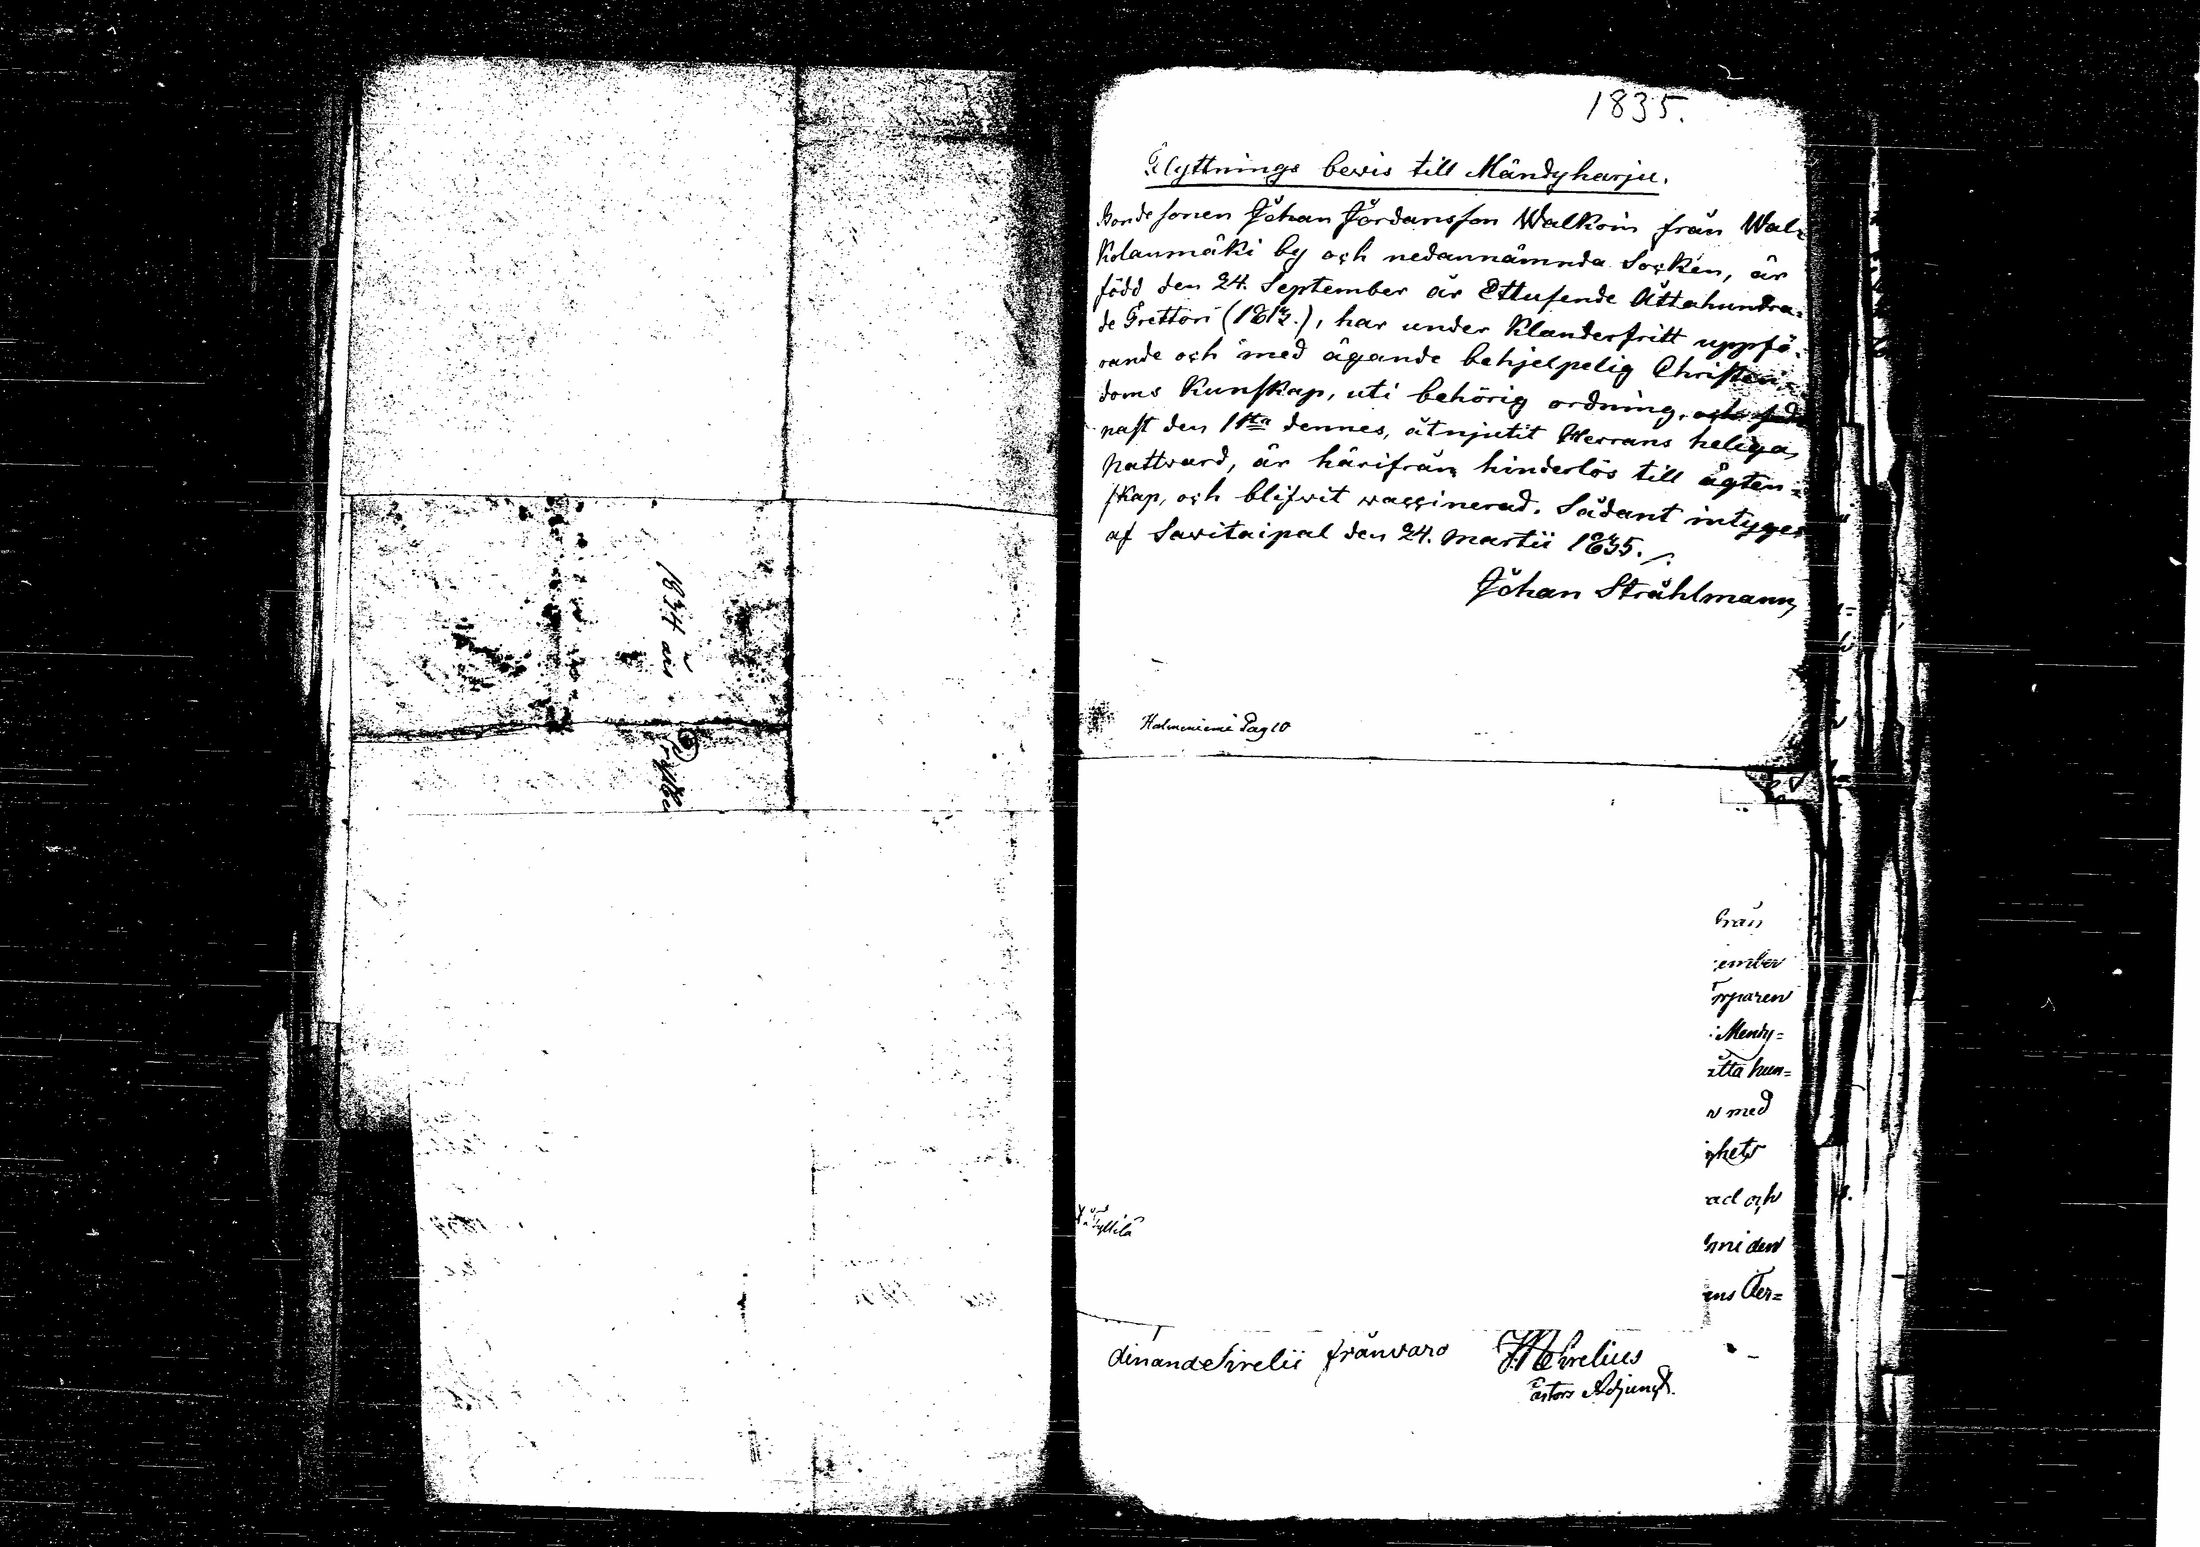 1834 års
1835.
Flyttnings bevis till Mändyharju.
Bondesonen Johan Jordansson Walkoin från Wal=
kolanmäki by och nedannämnda Socken, är
född den 24. September år Ettusende Åttahundra=
de Trettori (1813.), har under Klanderfritt uppfö=
rande och med ägande behjelpelig Christen=
doms Kunskap, uti behörig ordning,
nast den 1sta dennes, åtnjutit Herrans heliga
Nattward, är härifrån hinderlös till ägten=
skap, och blifwit waccinerad. Sådant intyges
af Savitaipal den 24. Martii 1835.
Johan Stråhlmann
Halmeniemi Pag 10
från
ember
orparen
Mendy=
åtta hun=
med
ghets
ad och
den
ens Fer=
dinand Sirelii frånvaro
Sirelius
astors Adjunct.